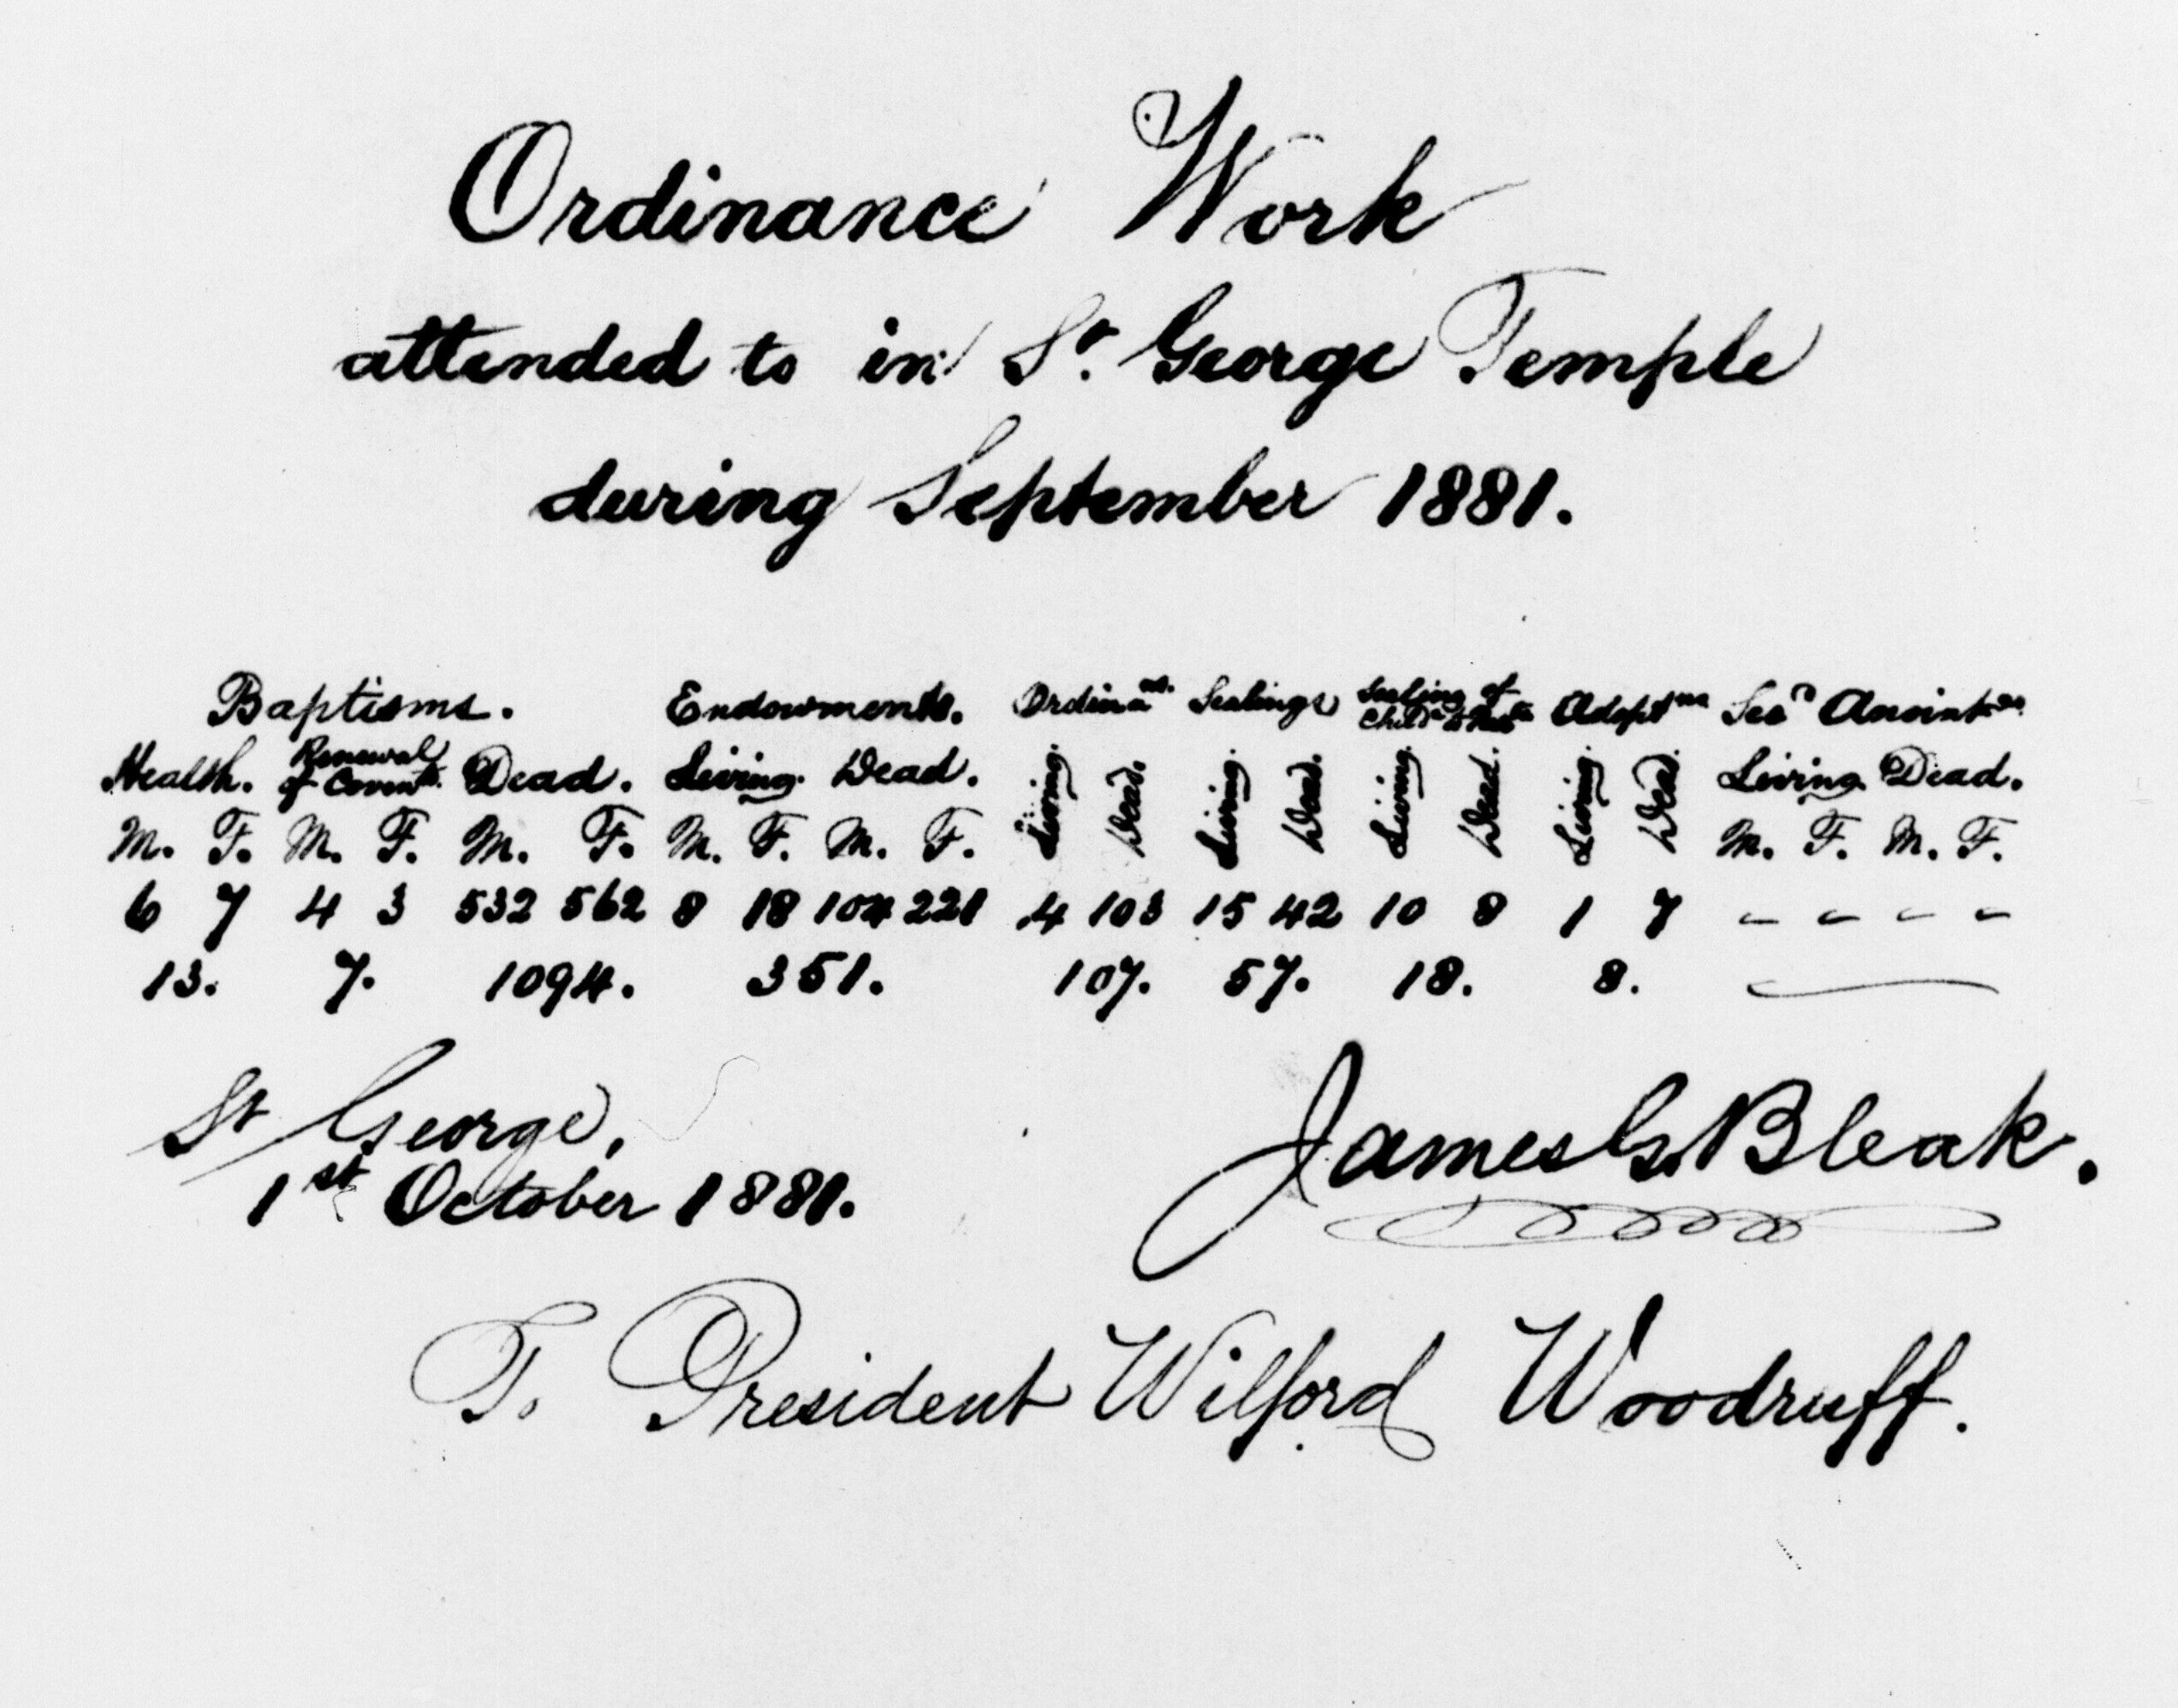 Ordinance Work
attended to in St. George Temple
during September 1881.
Baptisms. Endowments. Ordinans. Sealings Sealing of Childn to Parts Adoptns Secd Anointgs
Health. Renewal of Covnts. Dead. Living. Dead. Living. Dead. Living. Dead. Living. Dead. Living. Dead. Living. Dead.
M. F. M. F. M. F. M. F. M. F. M. F. M. F.
6 7 4 3 532 562 8 18 104 221 4 103 15 42 10 8 1 7 – – – –
13. 7. 1094. 351. 107. 57. 18. 8. —
St George,
1st October 1881.
James G. Bleak.
To President Wilford Woodruff.